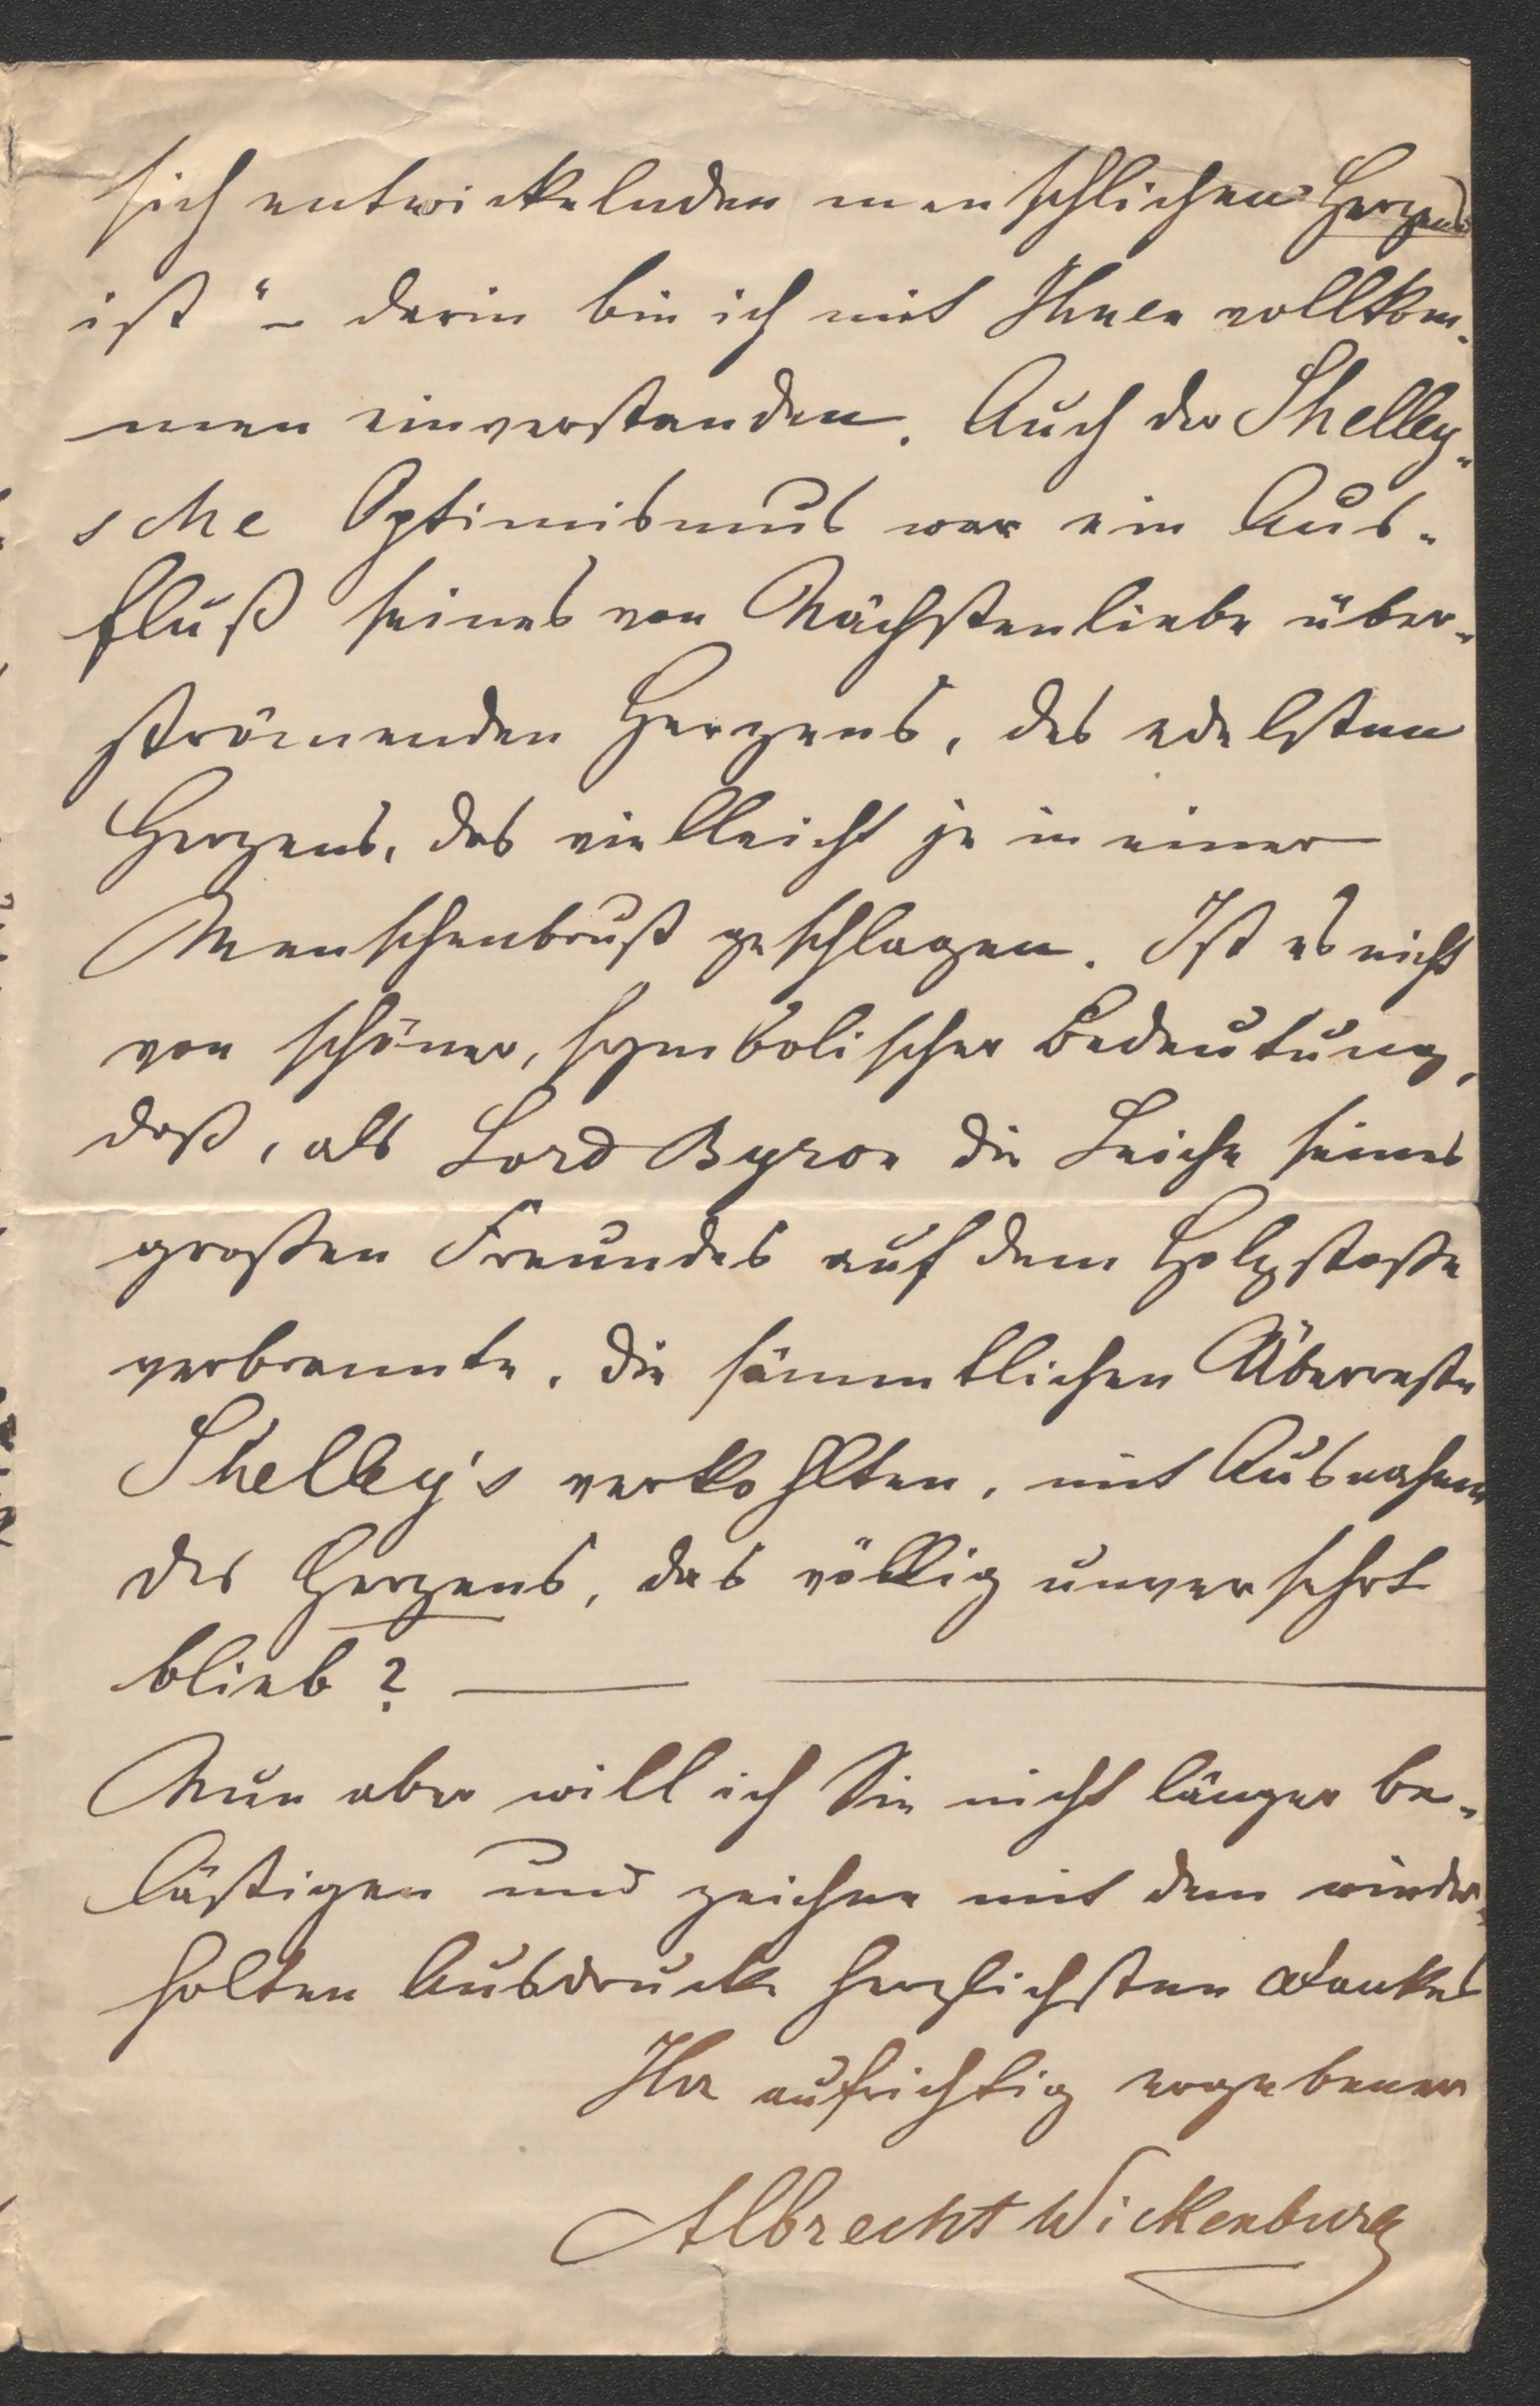 sich entwickelnden menschlichen Herzens
ist“ – darin bin ich mit Ihnen vollkom-
men einverstanden. Auch der Shelley-
sche Optimismus war ein Aus-
fluß seines von Nächstenliebe über-
strömenden Herzens, des edelsten
Herzens, das vielleicht je in einer
Menschenbrust geschlagen. Ist es nicht
von schöner, symbolischer Bedeutung,
daß, als Lord Byron die Leiche seines
großen Freundes auf dem Holzstoße
verbrannte, die sämmtlichen Überreste
Shelley's verkohlten, mit Ausnahme
des Herzens, das völlig unversehrt
blieb? —
Nun aber will ich Sie nicht länger be-
lästigen und zeichne mit dem wieder-
holten Ausdrucke herzlichsten Dankes
Ihr aufrichtig ergebener
Albrecht Wickenburg